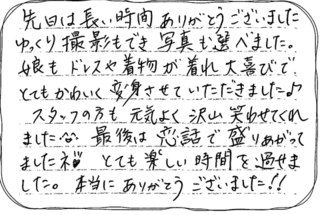 先日は長い時間ありがとうございました
ゆっくり撮影もでき写真も選べました。
娘もドレスや着物が着れ大喜びで
とてもかわいく変身させていただきました♪
スタッフの方も元気よく沢山笑わせてくれ
ました^^ 最後は恋話で盛りあがって
ましたネ♥ とても楽しい時間を過せま
した。本当にありがとうございました!!